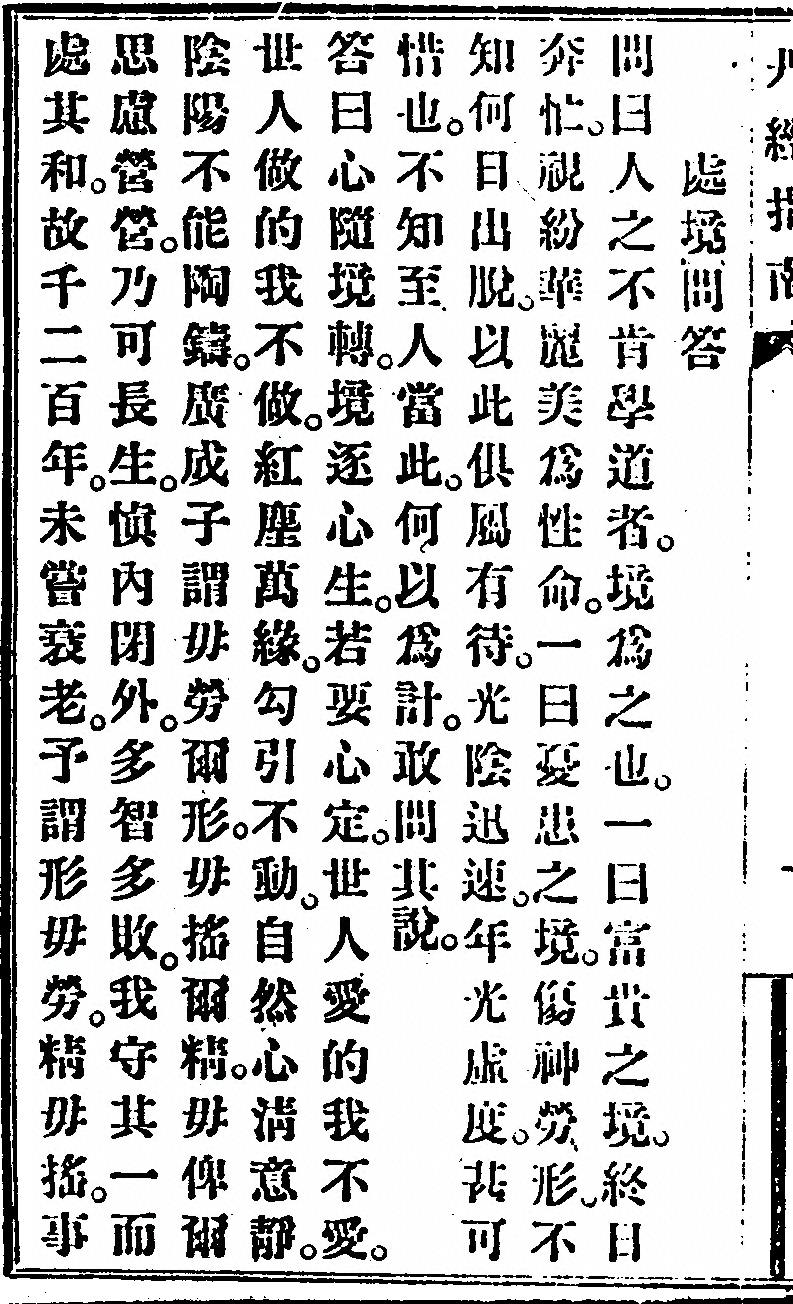 丹經指南
處境問答
問曰人之不肯學道者。境爲之也。一曰富貴之境。終日
奔忙。視紛華麗美爲性命。一曰憂患之境。傷神勞形。不
知何日出脫。以此俱屬有待。光陰迅速。年光虛度。甚可
惜也。不知至人當此。何以爲計。敢問其說。
答曰心隨境轉。境逐心生。若要心定。世人愛的我不愛。
世人做的我不做。紅塵萬緣。勾引不動。自然心淸意靜。
陰陽不能陶鑄。廣成子謂毋勞爾形。毋搖爾精。毋俾爾
思慮營營。乃可長生。愼內閉外。多智多敗。我守其一而
處其和。故千二百年。未嘗衰老。予謂形毋勞。精毋搖。事